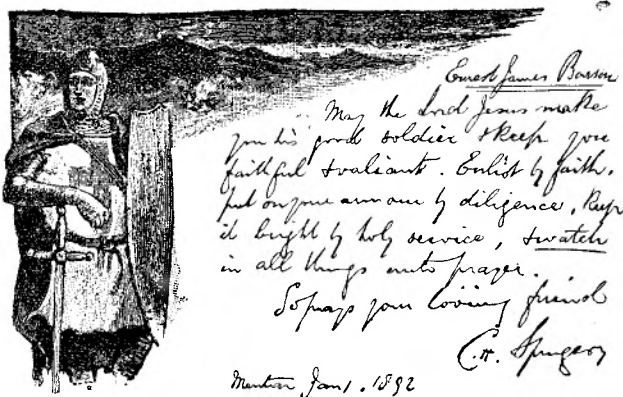 Ernest James Barson
May the Lord Jesus make
you his good soldier & keep you
faithful & valiant. Enlist by faith,
put on your armour by diligence, keep
it bright by holy service, & watch
in all things unto prayer.
So prays your loving friend
C. H. Spurgeon
Mentone, Jan 1. 1892